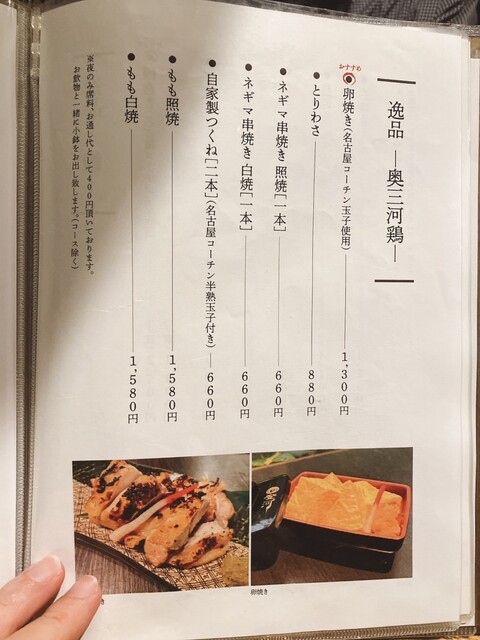 逸品 ―奥三河鶏―
おすすめ
卵焼き(名古屋コーチン玉子使用) 1,300円
● とりわさ 880円
● ネギマ串焼き 照焼[一本] 660円
● ネギマ串焼き 白焼[一本] 660円
● 自家製つくね[二本](名古屋コーチン半熟玉子付き) 660円
● もも照焼 1,580円
● もも白焼 1,580円
※夜のみ席料、お通し代として400円頂いております。
お飲物と一緒に小鉢をお出し致します。(コース除く)
卵焼き